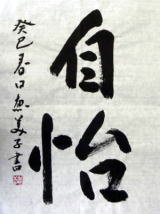 自怡
癸巳春日惠美子書